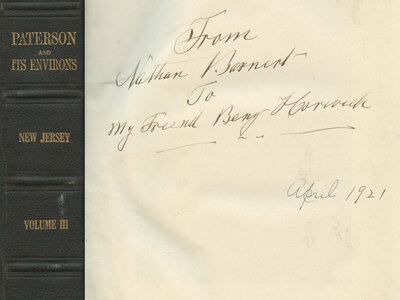 PATERSON
AND
ITS ENVIRONS
NEW JERSEY
VOLUME III
From
Nathan Barnert
To
My Friend Benj Horwich
April 1921